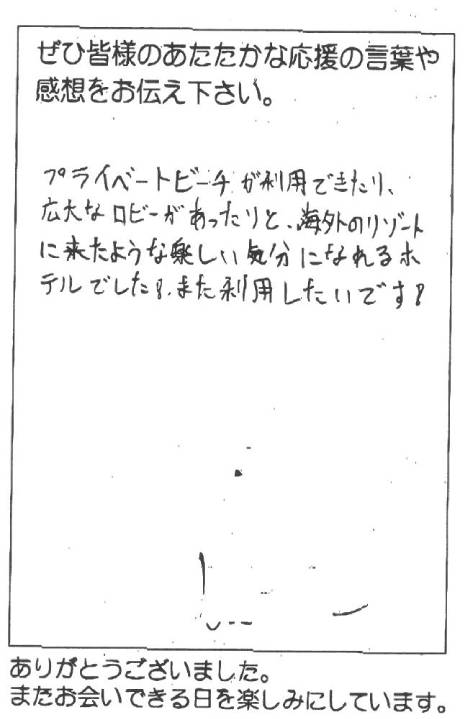 ぜひ皆様のあたたかな応援の言葉や
感想をお伝え下さい。
プライベートビーチが利用できたり、
広大なロビーがあったりと、海外のリゾート
に来たような楽しい気分になれるホ
テルでした!.また利用したいです!
ありがとうございました。
またお会いできる日を楽しみにしています。